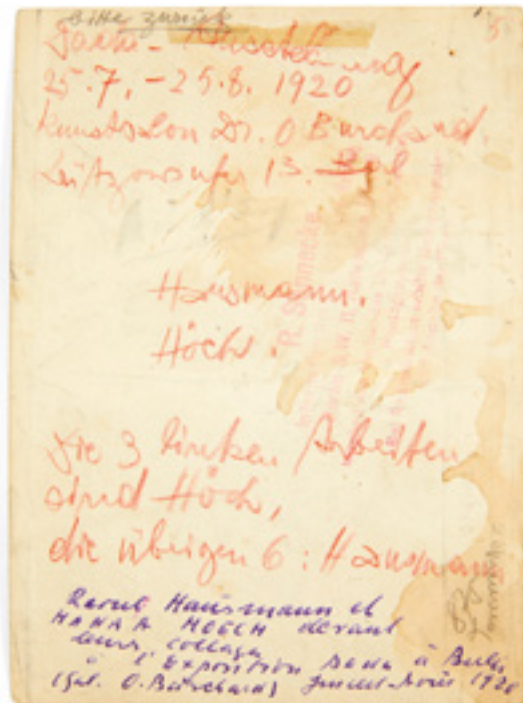 bitte zurück
5
Dada-Ausstellung
25.7.-25.8. 1920
Kunstsalon Dr. O Burchard.
Lützowufer 13. Berl
R. Sennecke
Hausmann.
Höch.
Die 3 linken Arbeiten
sind Höch,
die übrigen 6: Hausmann
Raoul Hausmann et
HANNA HOECH devant
leurs collages
à l'Exposition Dada à Berlin
(gal. O. Burchard) Juillet-Août 1920